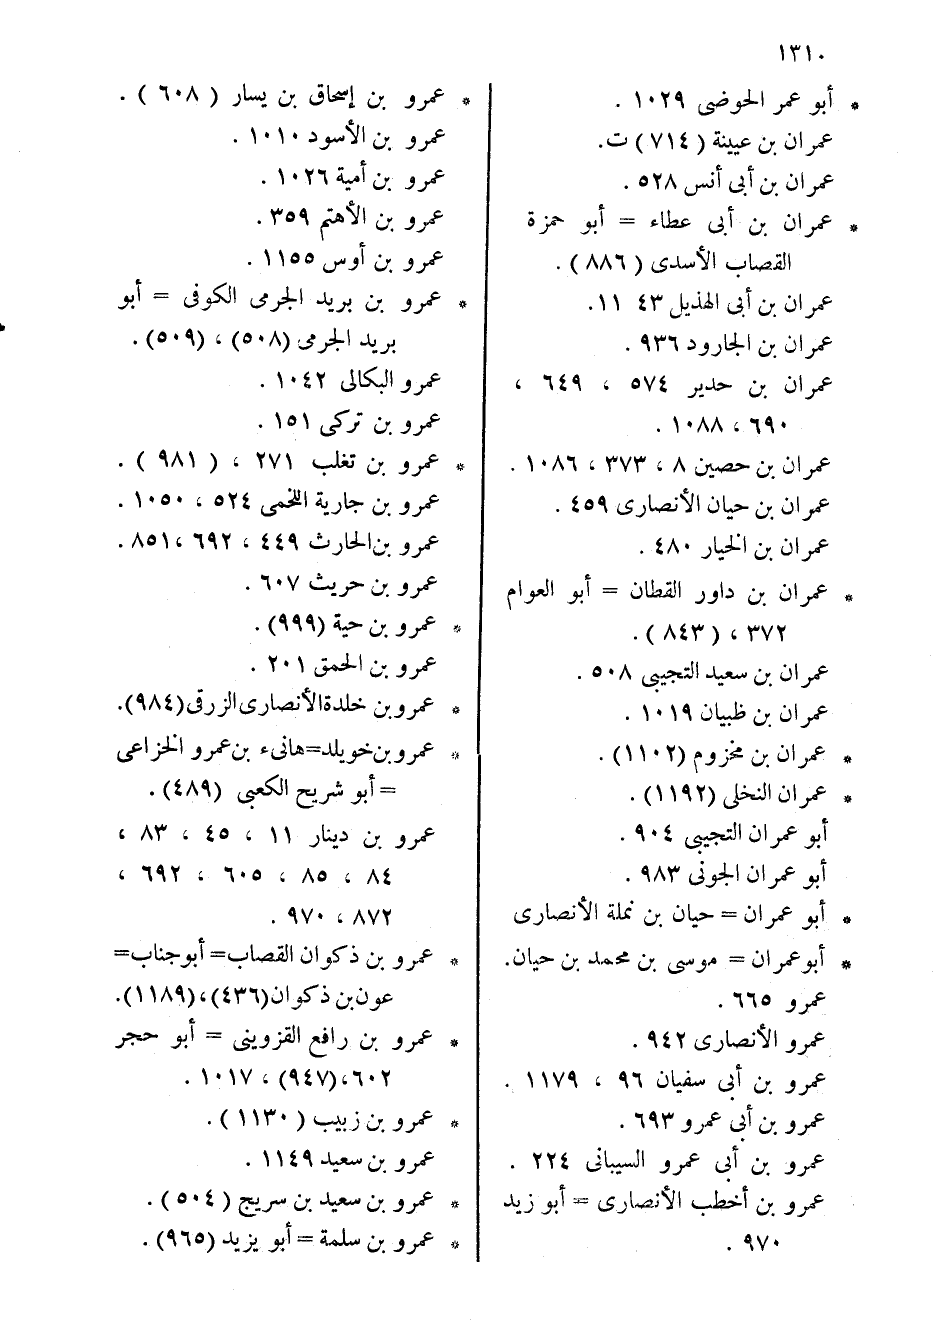 ١٣١٠
* أبو عمر الحوضى ١٠٢٩ .
عمران بن عيينة ( ٧١٤ ) ت.
عمران بن أبى أنس ٥٢٨ .
* عمران بن أبى عطاء = أبو حمزة
القصاب الأسدى ( ٨٨٦ ) .
عمران بن أبى الهذيل ٤٣ ١١.
عمران بن الجارود ٩٣٦ .
عمران بن حدير ٥٧٤ ، ٦٤٩ ،
٦٩٠ ، ١٠٨٨ .
عمران بن حصين ٨ ، ٣٧٣ ، ١٠٨٦ .
عمران بن حيان الأنصارى ٤٥٩ .
عمران بن الخيار ٤٨٠ .
* عمران بن داور القطان = أبو العوام
٣٧٢ ، ( ٨٤٣ ) .
عمران بن سعيد التجيبى ٥٠٨ .
عمران بن ظبيان ١٠١٩ .
* عمران بن مخزوم (١١٠٢) .
* عمران النخلى (١١٩٢) .
أبو عمران التجيبى ٩٠٤ .
أبو عمران الجونى ٩٨٣ .
* أبو عمران = حيان بن نملة الأنصارى
* أبوعمران = موسى بن محمد بن حيان.
عمرو ٦٦٥ .
عمرو الأنصارى ٩٤٢ .
عمرو بن أبى سفيان ٩٦ ، ١١٧٩ .
عمرو بن أبى عمرو ٦٩٣ .
عمرو بن أبى عمرو السيبانى ٢٢٤ .
عمرو بن أخطب الأنصارى = أبو زيد
٩٧٠ .
* عمرو بن إسحاق بن يسار ( ٦٠٨ ) .
عمرو بن الأسود ١٠١٠ .
عمرو بن أمية ١٠٢٦ .
عمرو بن الأهتم ٣٥٩ .
عمرو بن أوس ١١٥٥ .
* عمرو بن بريد الجرمى الكوفى = أبو
بريد الجرمى (٥٠٨) ، (٥٠٩) .
عمرو البكالى ١٠٤٢ .
عمرو بن تركى ١٥١ .
* عمرو بن تغلب ٢٧١ ، ( ٩٨١ ) .
عمرو بن جارية اللخمى ٥٢٤ ، ١٠٥٠ .
عمرو بن الحارث ٤٤٩ ، ٦٩٢ ، ٨٥١ .
عمرو بن حريث ٦٠٧ .
* عمرو بن حية (٩٩٩) .
عمرو بن الحمق ٢٠١ .
* عمروبن خلدة الأنصارى الزرقى (٩٨٤).
* عمروبن خويلد=هانىء بن عمرو الخزاعى
= أبو شريح الكعبى (٤٨٩) .
عمرو بن دينار ١١ ، ٤٥ ، ٨٣ ،
٨٤ ، ٨٥ ، ٦٠٥ ، ٦٩٢ ،
٨٧٢ ، ٩٧٠ .
* عمرو بن ذكوان القصاب= أبوجناب=
عون بن ذكوان (٤٣٦)، (١١٨٩).
* عمرو بن رافع القزوينى = أبو حجر
٦٠٢، (٩٤٧) ، ١٠١٧ .
* عمرو بن زبيب ( ١١٣٠ ) .
عمرو بن سعيد ١١٤٩ .
* عمرو بن سعيد بن سريج ( ٥٠٤ ) .
* عمرو بن سلمة = أبو يزيد (٩٦٥) .